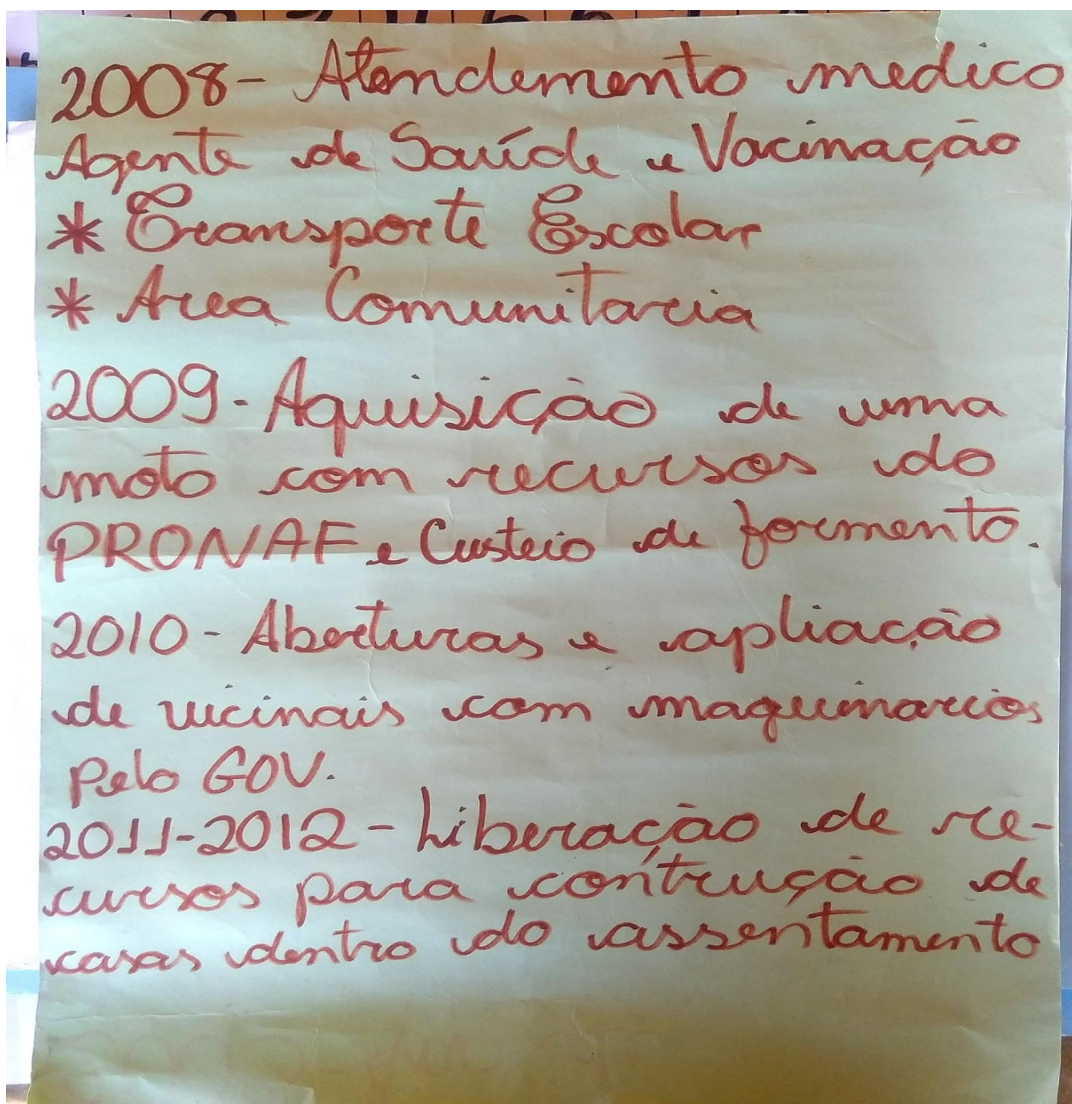 2008 - Atendemento medico
Agente de Saúde e Vacinação
* Transporte Escolar
* Area Comunitaria
2009 - Aquisição de uma
moto com recursos do
PRONAF e Custeio de formento.
2010 - Aberturas e apliacação
de vicinais com maquinarios
Pelo GOV.
2011-2012 - Liberação de re-
cursos para contrução de
casas dentro do assentamento